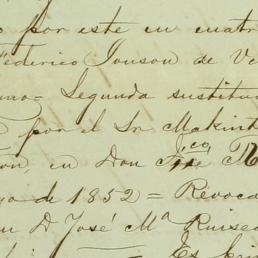 por este en cuatro
Federico Jonson de Ve
Segunda sustitu
por el Sr Makint
en Don
de 1852 = Revoca
D José Mª Ruisec